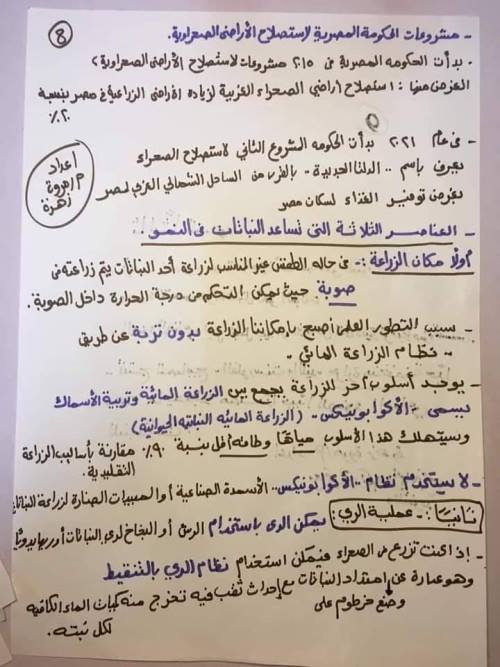 8
- مشروعات الحكومة المصرية لاستصلاح الأراضى الصحراوية.
. بدأت الحكومه المصرية فى ٢٠١٥ مشروعات لاستصلاح الأراضى الصحراوية؟
الغرض منها: استصلاح أراضي الصحراء الغربية لزياده الأراضى الزراعية فى مصر بنسبة
٢٠٪
- فى عام ٢٠٢١ بدأت الحكومه المشروع الثانى لاستصلاح الصحراء
يعرف باسم .. الدلتا الجديدة - بالقرب من الساحل الشمالي الغربى لمصر
بغرض توفير الغذاء لسكان مصر
اعداد
م/مروة
زهرة
- العناصر الثلاثة التى تساعد النباتات فى النمو.
أولا مكان الزراعة :- فى حاله الطقس غير المناسب لزراعة أحد النباتات يتم زراعته فى
صوبة حيث يمكن التحكم من درجة الحرارة داخل الصوبة.
- بسبب التطور العلمى أصبح بإمكاننا الزراعة بدون تربة عن طريق
.. نظام الزراعة المائى ..
- يوجد أسلوب آخر للزراعة يجمع بين الزراعة المائية وتربية الأسماك
يسمى - الأكوابونيكس - (الزراعة المائيه النباتيه الحيوانية)
وسيتهلك هذا الأسلوب مياهًا وطاقه أقل بنسبة ٩٠٪ مقارنة بأساليب الزراعة
التقليدية.
- لا يستخدم نظام .. الأكوابونيكس .. الأسمدة الصناعية أو المبيدات الضارة لزراعة النباتات
ثانيا :- عملية الري : يمكن الرى باستخدام الرش أو البخاخ لرى النباتات أو ريها يدويًا
- إذا كنت تزرع فى الصحراء فيمكن استخدام نظام الري بالتنقيط
وهو عبارة عن امتداد النباتات مع إحداث ثقب فيه تخرج منه كميات الماء الكافيه
وضع خرطوم على
لكل نبته.